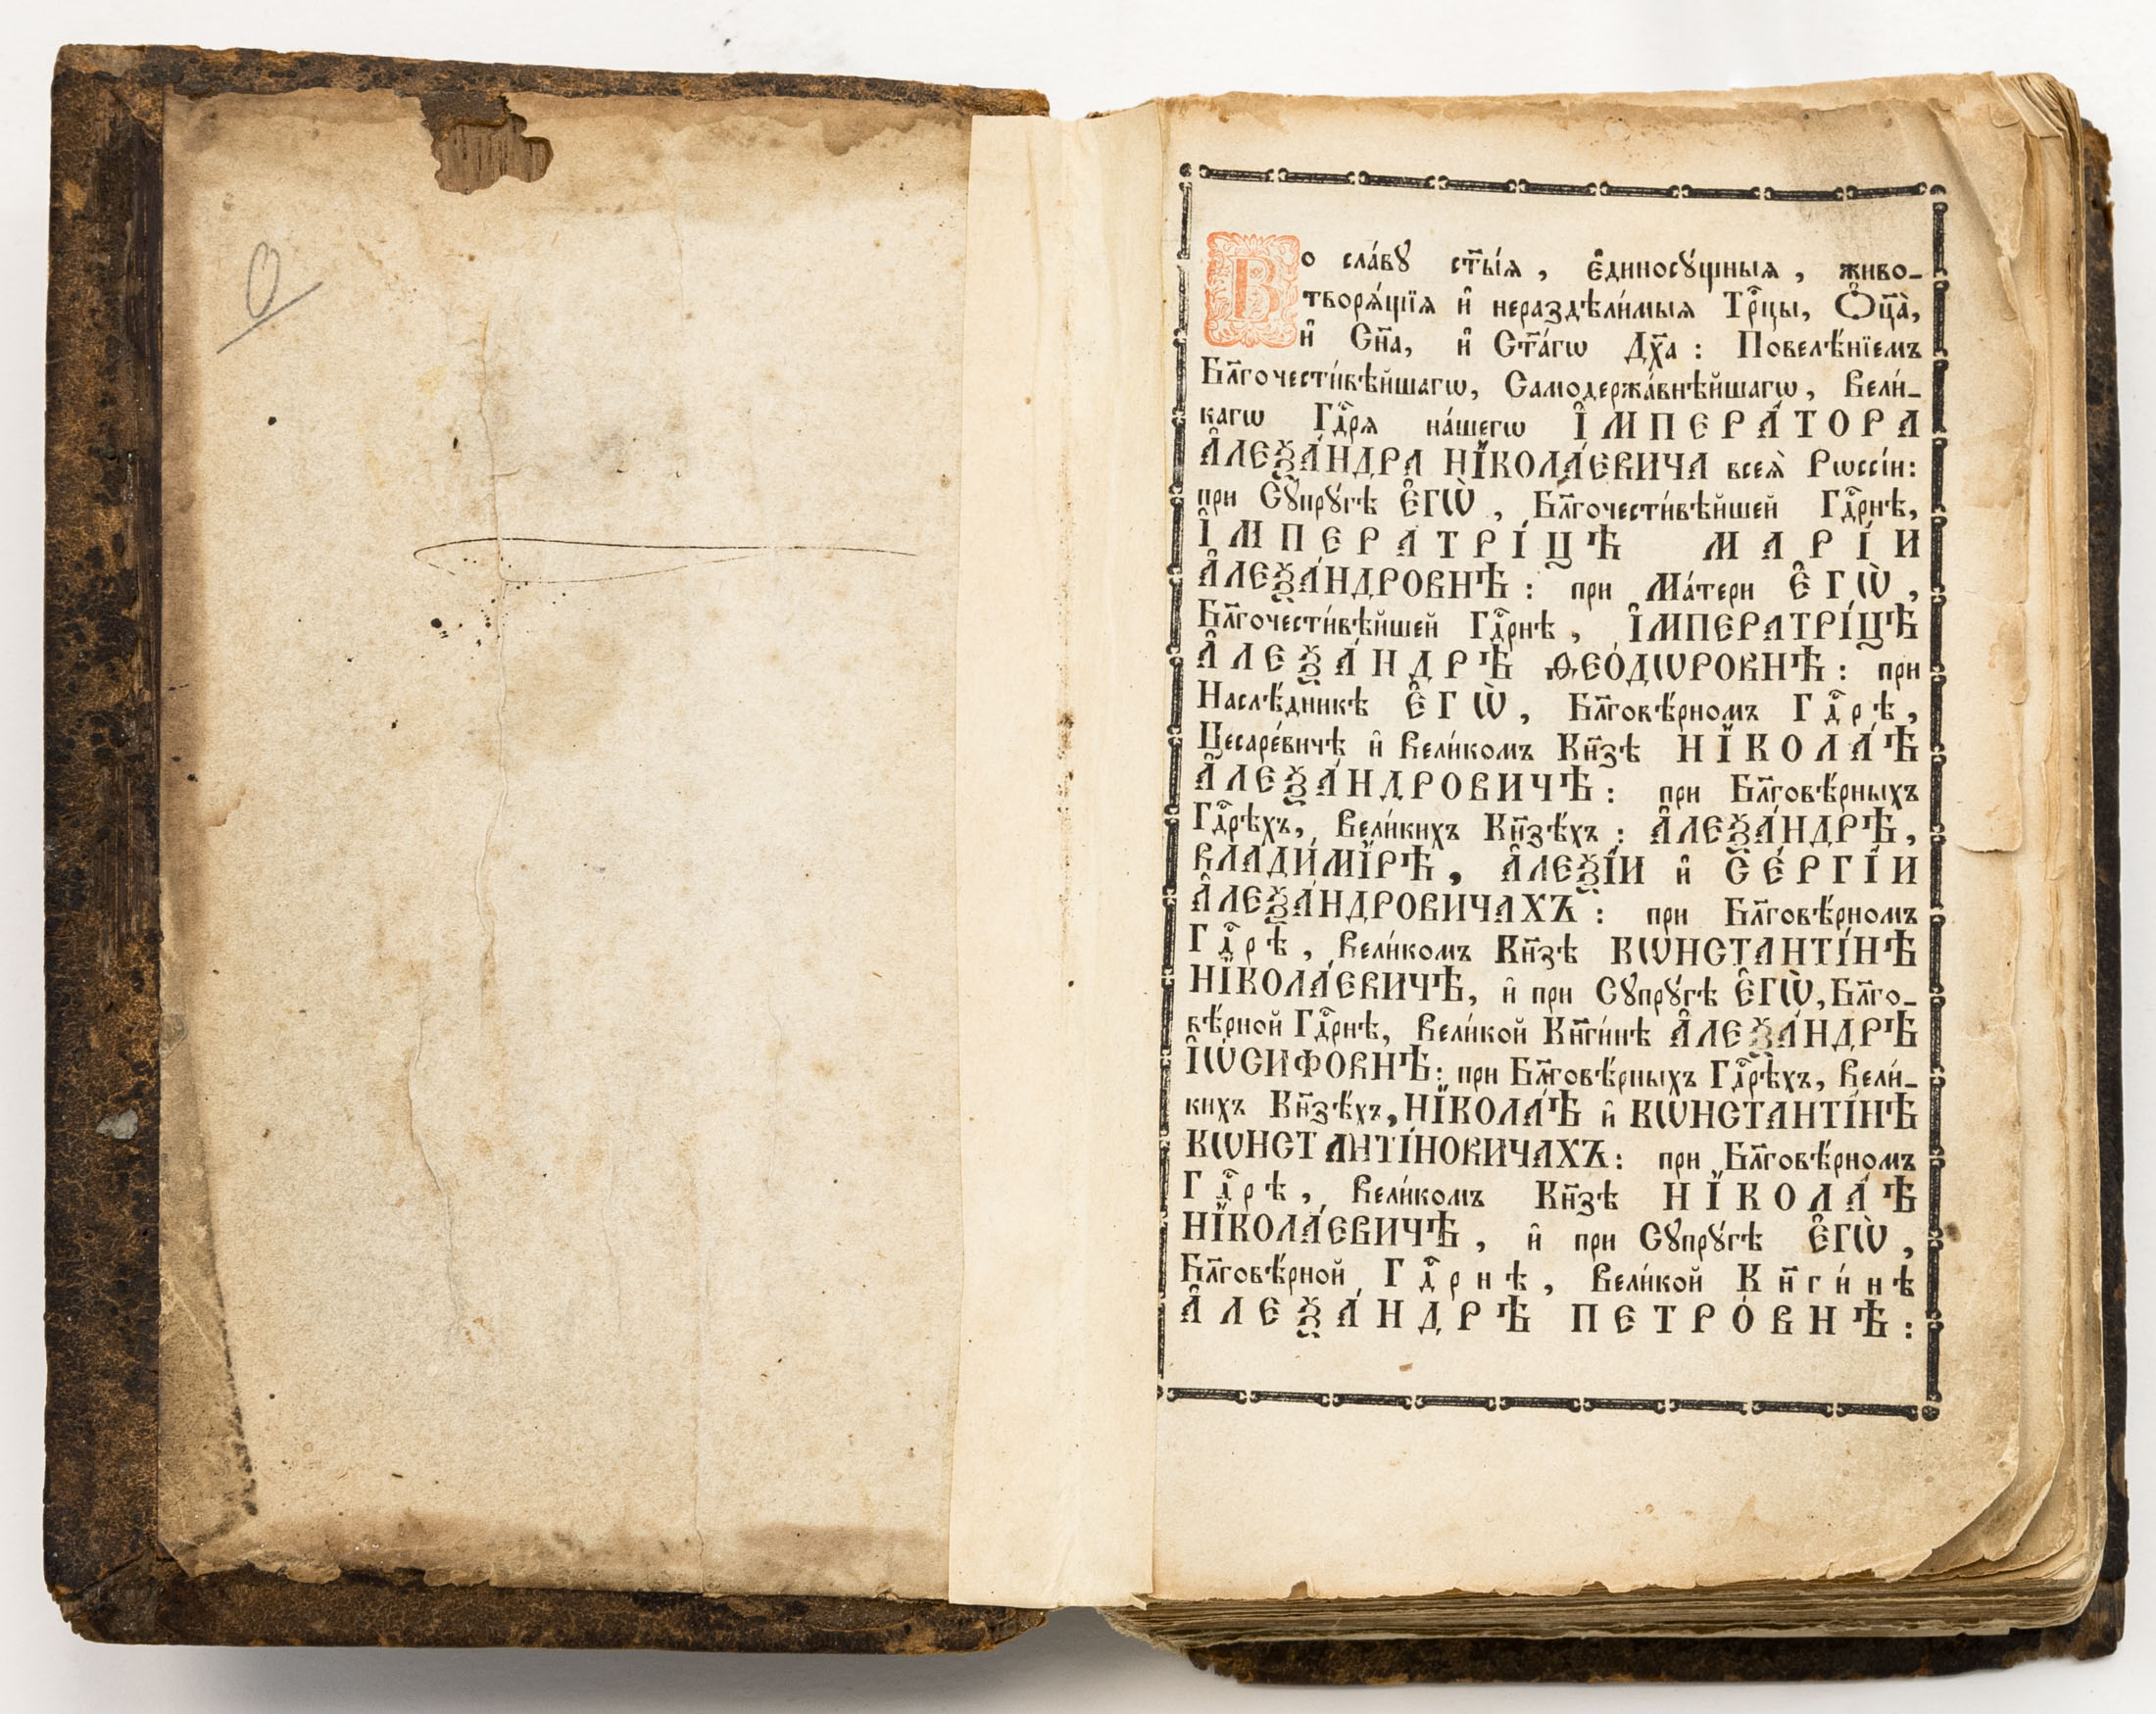 Во сла́вꙋ ст҃ы́ѧ, є҆диносꙋ́щныѧ, живо-
творѧ́щїѧ и҆ нераздѣли́мыѧ Трⷪ҇цы, Ѻ҆ц҃а̀,
и҆ Сн҃а, и҆ Ст҃а́гѡ Дх҃а : Повелѣ́нїемъ
Бл҃гочести́вѣйшагѡ, Самодержа́внѣйшагѡ, Вели́-
кагѡ Гдⷭ҇рѧ на́шегѡ І҆МПЕРА́ТОРА
А҆ЛЕѮА́НДРА НЇКОЛА́ЕВИЧА всеѧ̀ Рѡссі́и:
при Сꙋпрꙋ́гѣ Є҆ГѠ̀ , Бл҃гочести́вѣйшей Гдⷭ҇рнѣ,
І҆МПЕРАТРІ́ЦѢ МАРІ́И
А҆ЛЕѮА́НДРОВНѢ : при Ма́тери Є҆ГѠ̀ ,
Бл҃гочести́вѣйшей Гдⷭ҇рнѣ , І҆МПЕРАТРІ́ЦѢ
А҆ЛЕѮА́НДРѢ ѲЕО́ДѠРОВНѢ : при
Наслѣ́дникѣ Є҆ГѠ̀ , Бл҃говѣ́рномъ Гдⷭ҇рѣ ,
Цесаре́вичѣ и҆ Вели́комъ Кн҃зѣ НЇКОЛА́Ѣ
А҆ЛЕѮА́НДРОВИЧѢ : при Бл҃говѣ́рныхъ
Гдⷭ҇рѣхъ, Вели́кихъ Кн҃зѣ́хъ : А҆ЛЕѮА́НДРѢ,
ВЛАДИ́МЇРѢ , А҆ЛЕѮІ́И и҆ СЕ́РГІИ
А҆ЛЕѮА́НДРОВИЧАХЪ : при Бл҃говѣ́рномъ
Гдⷭ҇рѣ , Вели́комъ Кн҃зѣ КѠНСТАНТІ́НѢ
НЇКОЛА́ЕВИЧѢ, и҆ при Сꙋпрꙋ́гѣ Є҆ГѠ̀, Бл҃го-
вѣ́рной Гдⷭ҇рнѣ, Вели́кой Кн҃ги́нѣ А҆ЛЕѮА́НДРѢ
І҆Ѡ́СИФОВНѢ: при Бл҃говѣ́рныхъ Гдⷭ҇рѣхъ, Вели́-
кихъ Кн҃зѣ́хъ, НЇКОЛА́Ѣ и҆ КѠНСТАНТІ́НѢ
КѠНСТАНТІ́НОВИЧАХЪ: при Бл҃говѣ́рномъ
Гдⷭ҇рѣ , Вели́комъ Кн҃зѣ НЇКОЛА́Ѣ
НЇКОЛА́ЕВИЧѢ , и҆ при Сꙋпрꙋ́гѣ Є҆ГѠ̀ ,
Бл҃говѣ́рной Гдⷭ҇рнѣ , Вели́кой Кн҃ги́нѣ
А҆ЛЕѮА́НДРѢ ПЕТРО́ВНѢ :